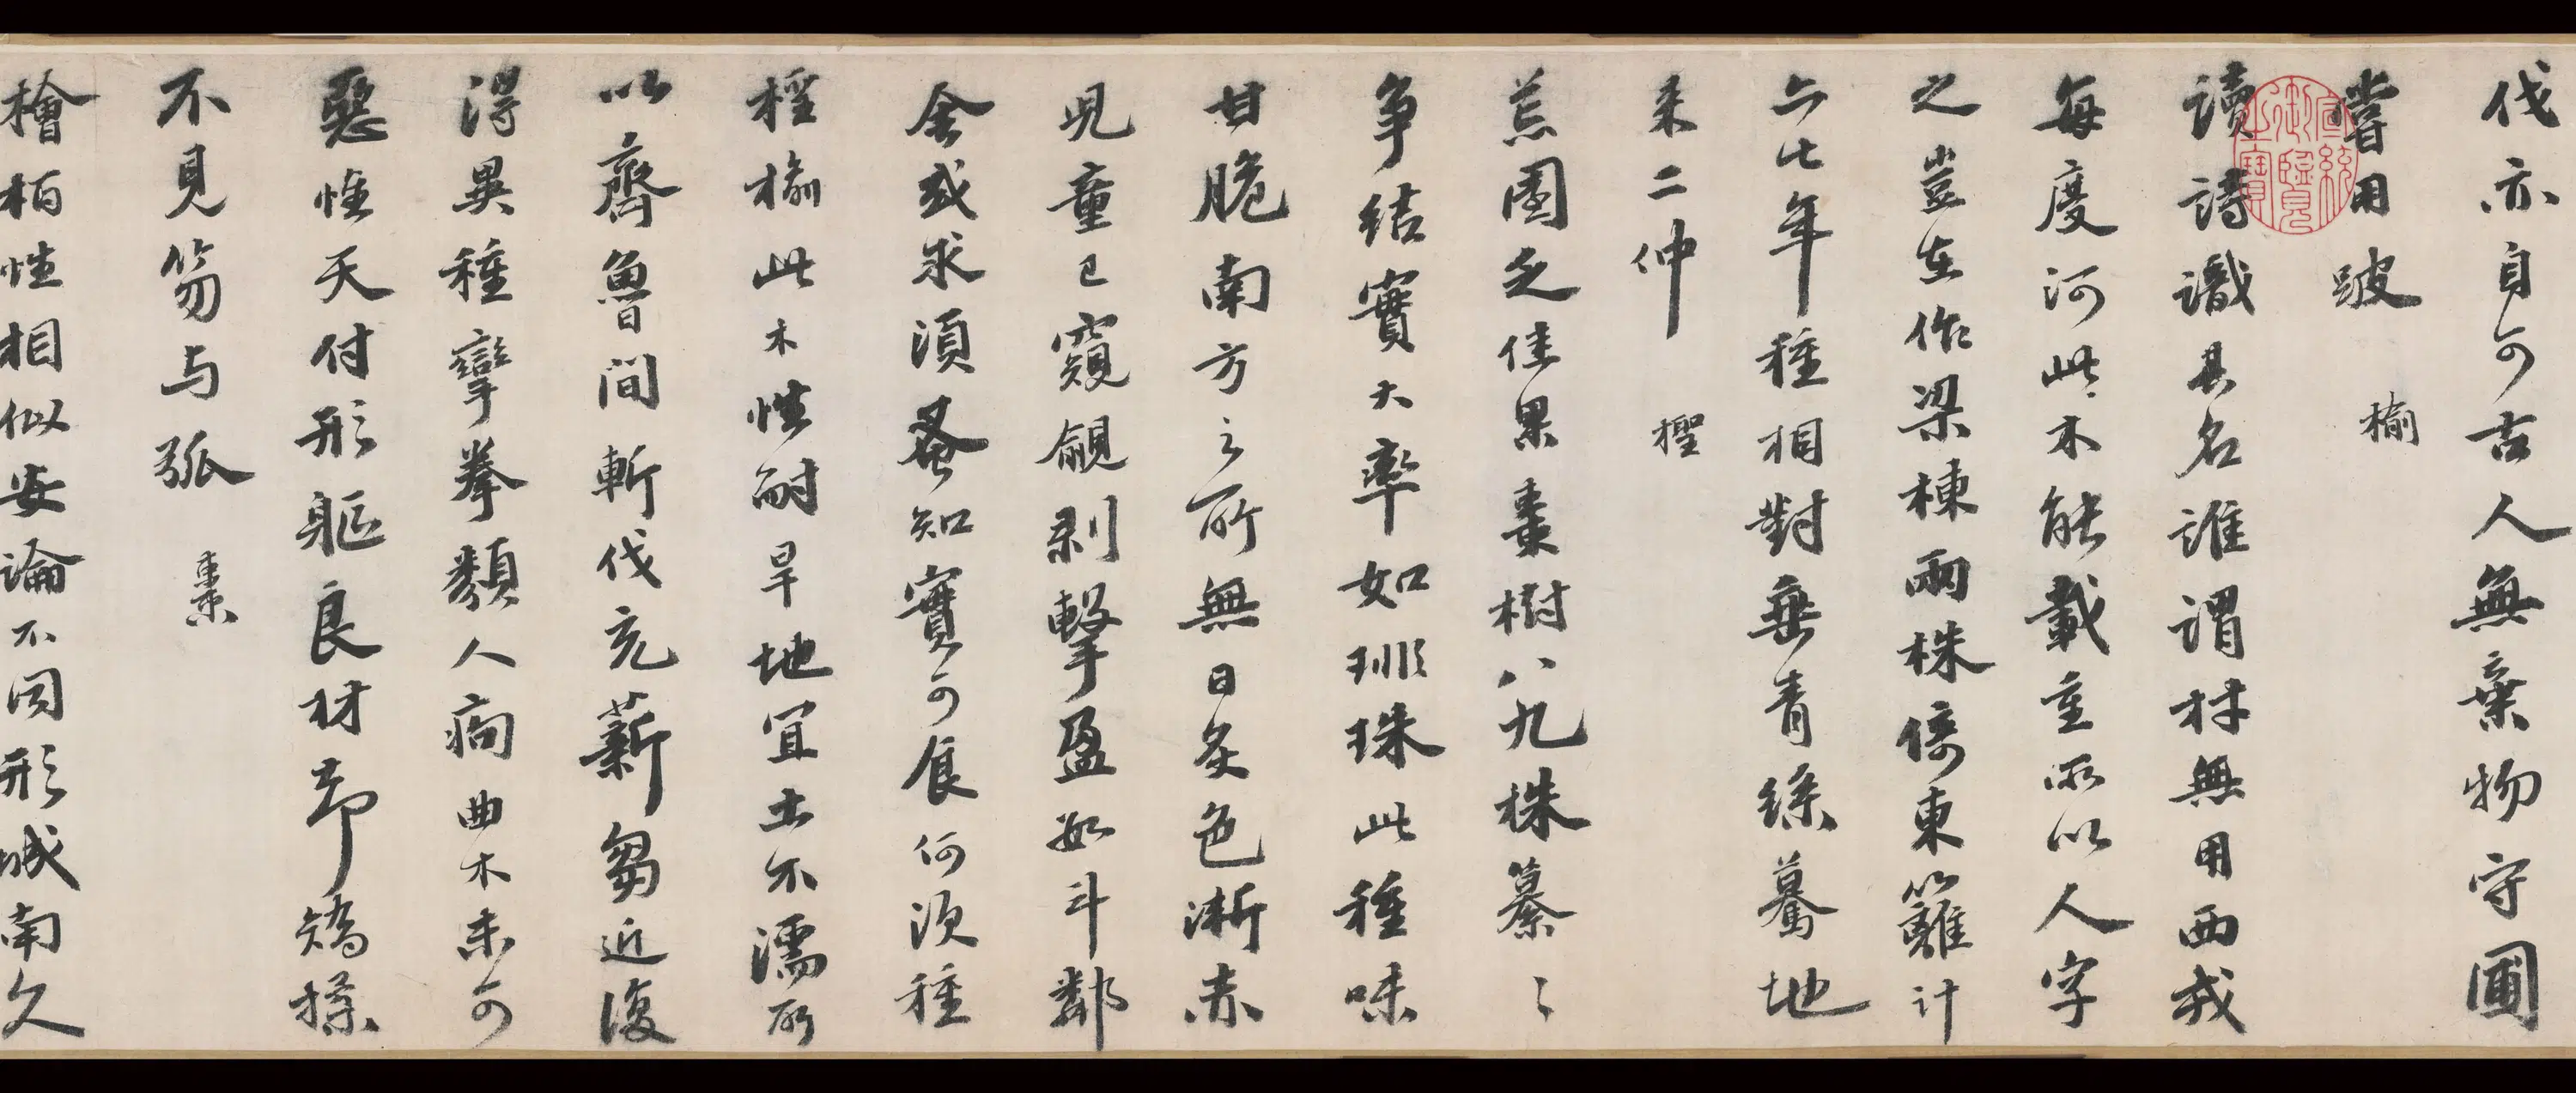 伐亦自可古人無棄物守圃
嘗用跛 榆
讀詩識其名誰謂材無用西戎
每度河此木能載重所以人字
之豈在作梁棟兩株倚東籬計
六七年種相對垂青絲驀地
来二仲 檉
荒園乏佳果棗樹八九株纂〻
争結實大率如琲珠此種味
甘脆南方之所無日炙色漸赤
児童已窺覦剥擊盈數斗鄰
舍或求須蚤知實可食何須種
檉榆此木性耐旱地宜土不濡所
以齊魯間斬伐充薪芻近復
得異種孿拳類人痀曲木未可
惡惟天付形軀良材卻矯揉
不見笏与弧 棗
檜栢性相似安論不同形城南久
宣統御覽之寶